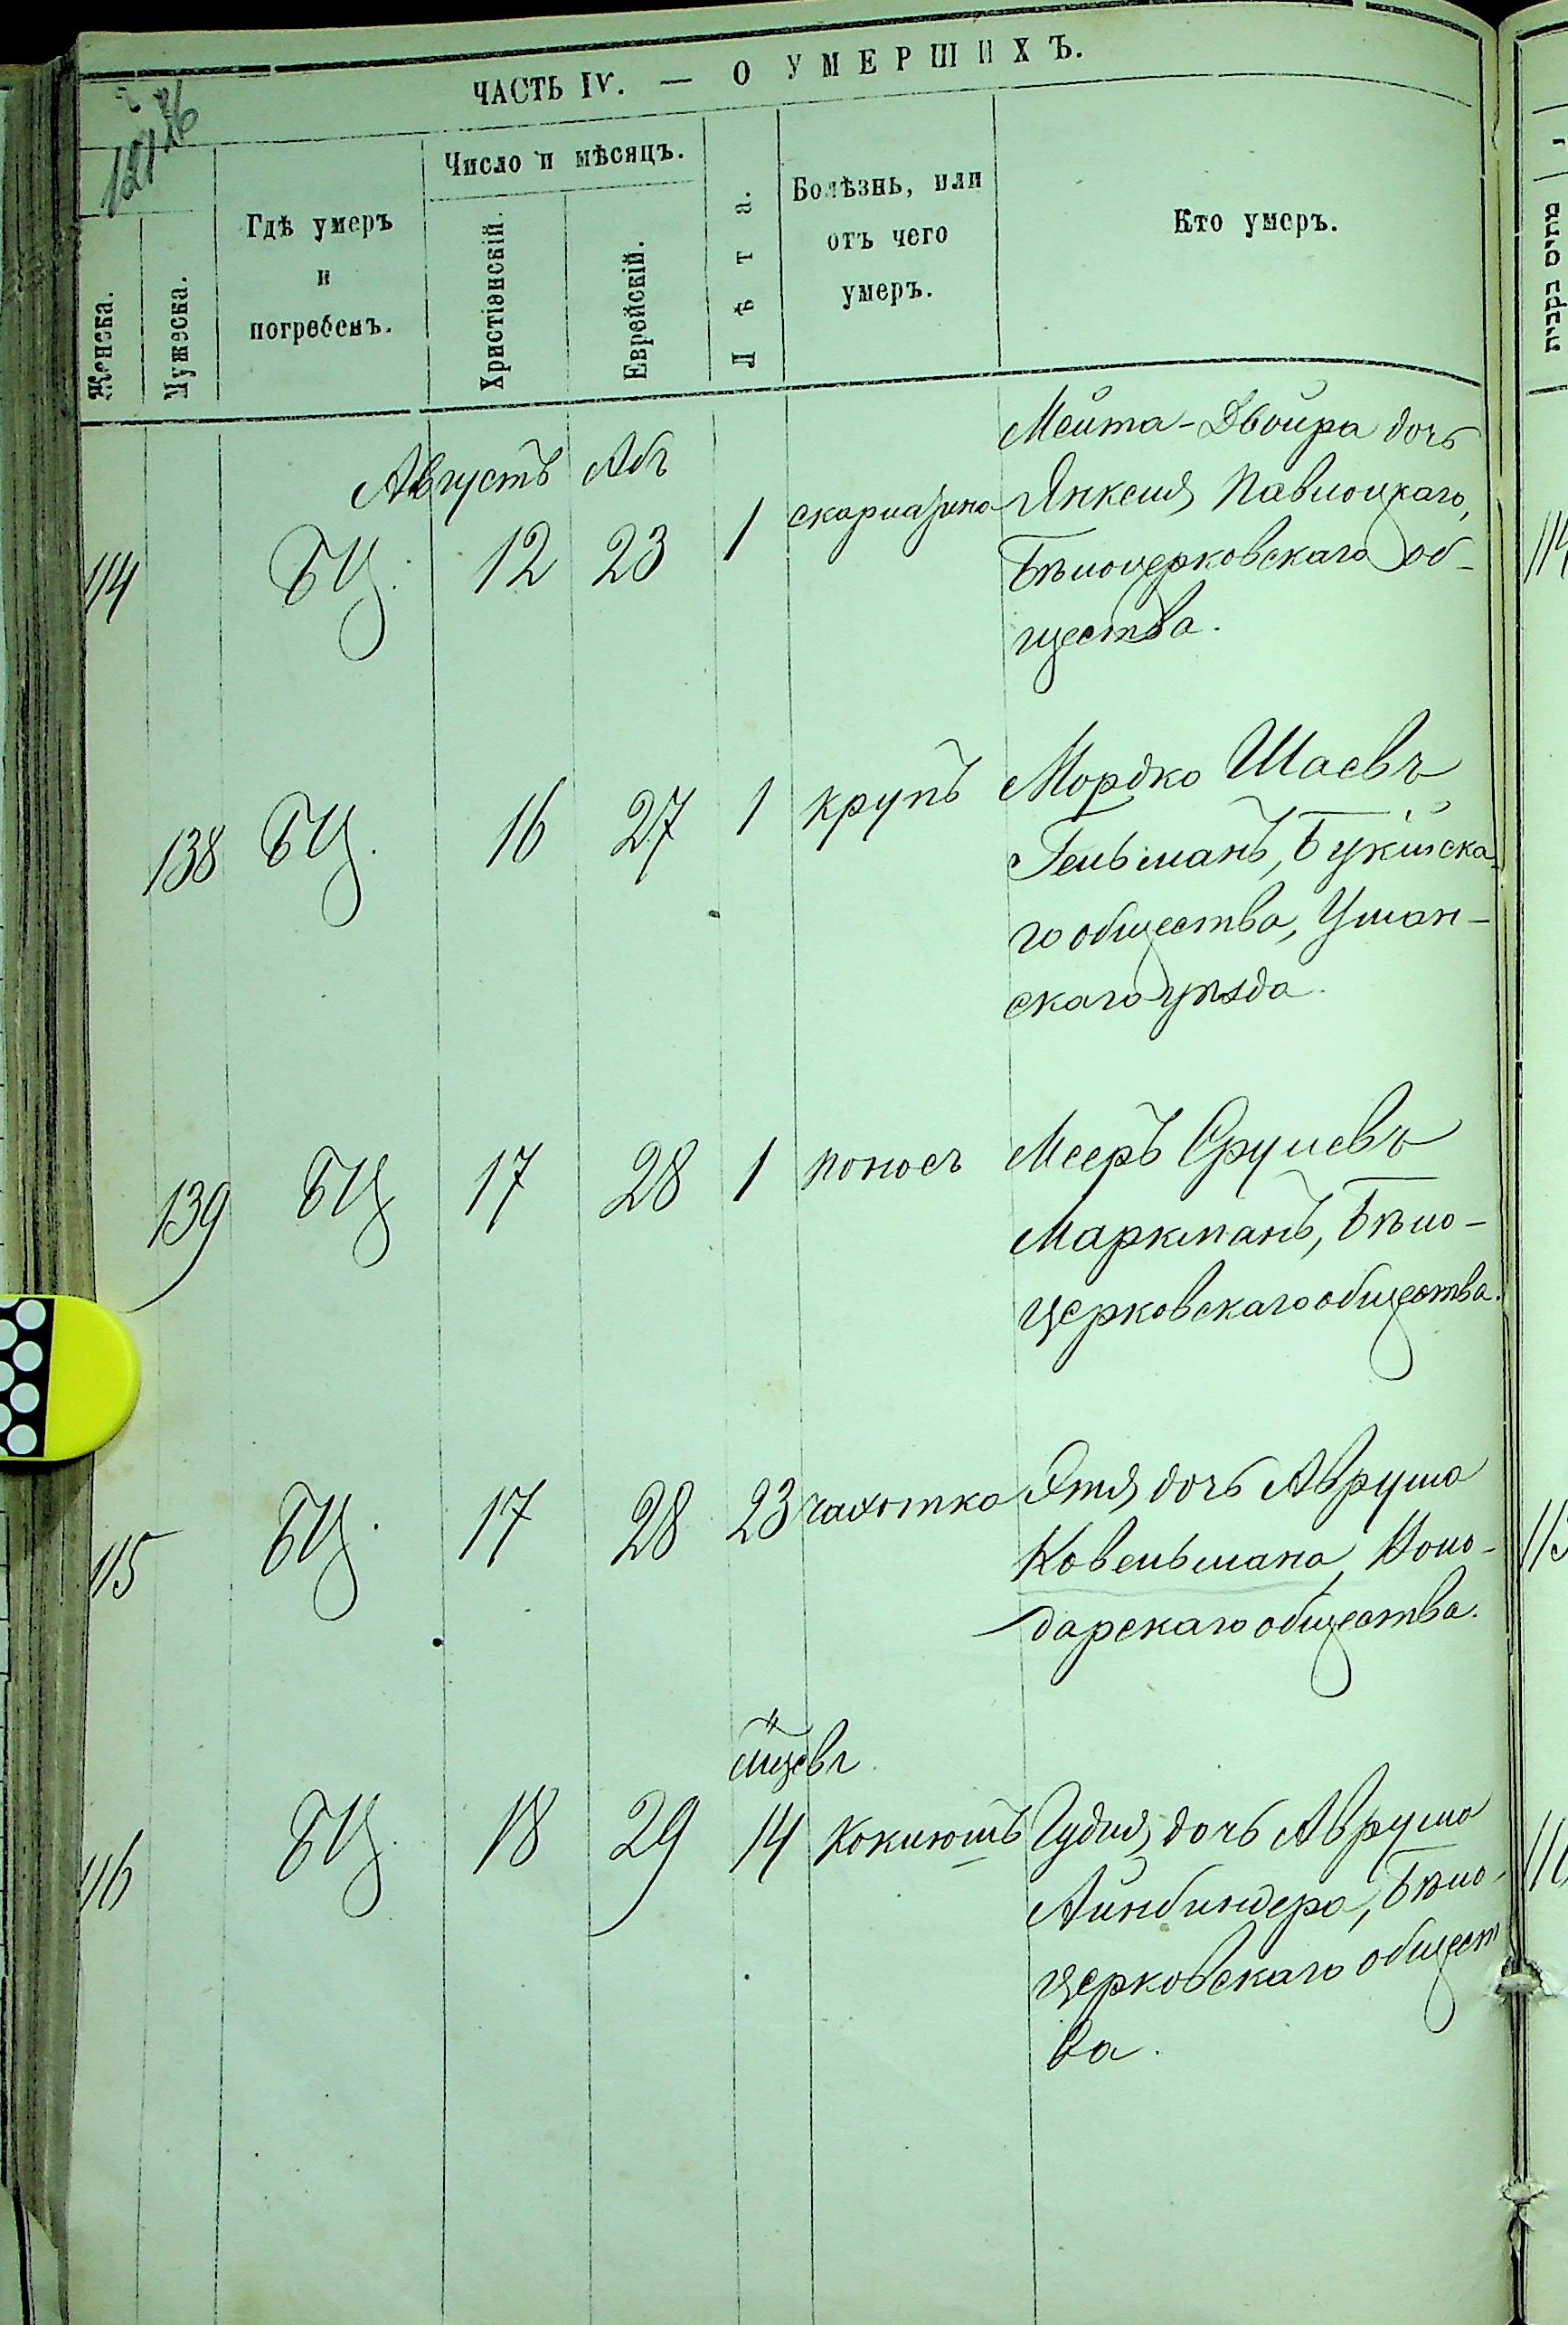 ЧАСТЬ IV. — О УМЕРШИХЪ.
Женска.
Мужеска.
Гдѣ умеръ
и
погребенъ.
Число и мѣсяцъ.
Христіанскій.
Еврейскій.
Лѣта.
Болѣзнь, или
отъ чего
умеръ.
Кто умеръ.
Августъ Абъ
114 БЦ. 12 23 1 скарлатина Мейта-Двойра дочь
Янкеля Павлоцкаго,
Бѣлоцерковскаго об-
щества.
138 БЦ. 16 27 1 крупъ Мордко Шаевъ
Гельманъ, Букійска-
го общества, Уман-
скаго уѣзда.
139 БЦ 17 28 1 поносъ Мееръ Срулевъ
Маркманъ, Бѣло-
церковскаго общества.
115 БЦ. 17 28 23 чахотка Этя дочь Аврума
Ковельмана, Воло-
дарскаго общества.
мцевъ
116 БЦ. 18 29 14 Коклюшъ Гудля дочь Аврума
Айнбиндера, Бѣло-
церковскаго общест
ва.